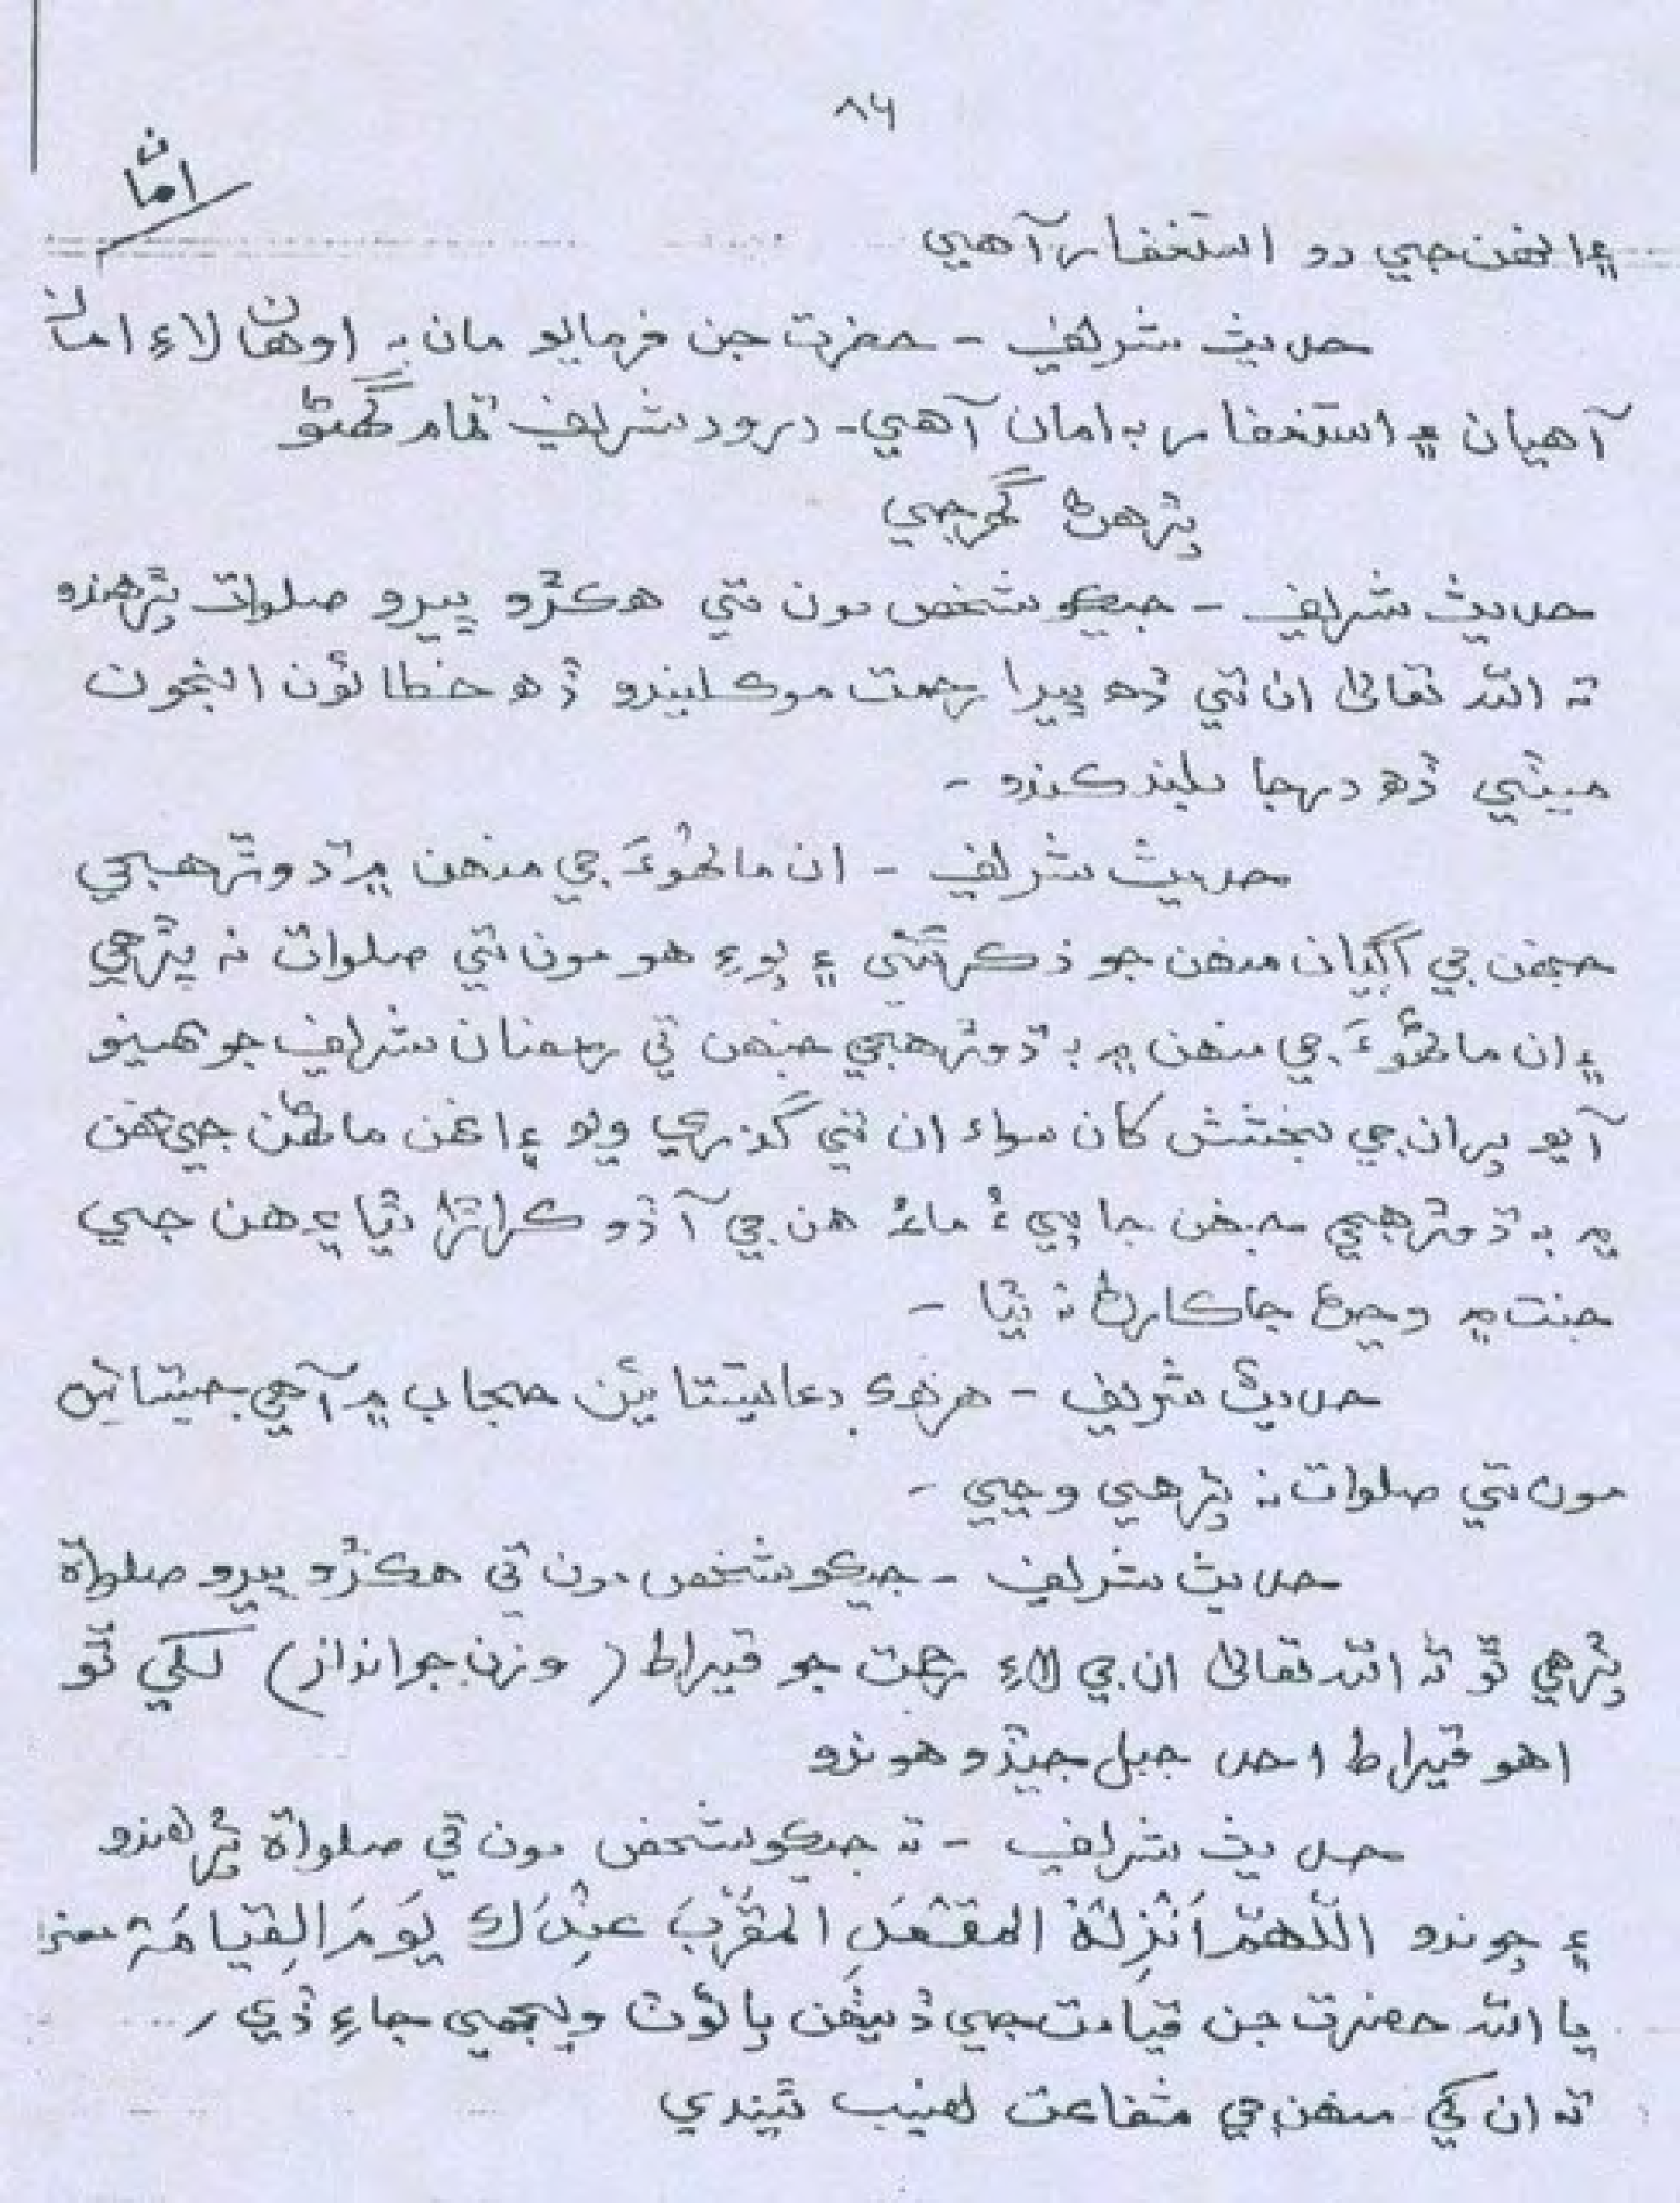 ۸۶
امان
۽ انهن جي دو استغفار آهي
حديث شريف - حضرت جن فرمايو مان به اوهان لاءِ امان
آهيان ۽ استغفار به امان آهي - درود شريف تمام گهڻو
پڙهڻ گهرجي
حديث شريف - جيڪو شخص مون تي هڪڙو ڀيرو صلوات پڙهندو
ته الله تعاليٰ ان تي ڏهه ڀيرا رحمت موڪليندو ڏهه خطائون انجون
ميٽي ڏهه درجا بلند ڪندو -
حديث شريف - ان ماڻهوءَ جي منهن ۾ ڌوڙ هجي
جنهن جي اڳيان منهن جو ذڪر ٿئي ۽ پوءِ هو مون تي صلوات نه پڙهي
۽ ان ماڻهوءَ جي منهن ۾ به ڌوڙ هجي جنهن تي رمضان شريف جو مهينو
آيو پر ان جي بخشش کان سواءِ ان تي گذري ويو ۽ انهن ماڻهن جي منهن
۾ به ڌوڙ هجي جنهن جا پيءُ ماءُ هن جي آڏو ڪراڙا ٿيا ۽ هن جي
جنت ۾ وڃڻ جا ڪارڻ نه ٿيا -
حديث شريف - هر هڪ دعا تيستائين حجاب ۾ آهي جيستائين
مون تي صلوات نه پڙهي وڃي -
حديث شريف - جيڪو شخص مون تي هڪڙو ڀيرو صلواة
پڙهي ٿو ته الله تعاليٰ ان جي لاءِ رحمت جو قيراط ( وزن جو انداز ) لکي ٿو
اهو قيراط احد جبل جيڏو هوندو
حديث شريف - ته جيڪو شخص مون تي صلواة پڙهندو
۽ چوندو اَللّٰهُمَّ اَنْزِلْهُ المَقْعَدَ المُقَرَّبَ عِنْدَكَ يَوْمَ الْقِيَامَةِ
يا الله حضرت جن قيامت جي ڏينهن پاڻون ويجهي جاءِ ڏي ،
ته ان کي منهن جي شفاعت نصيب ٿيندي